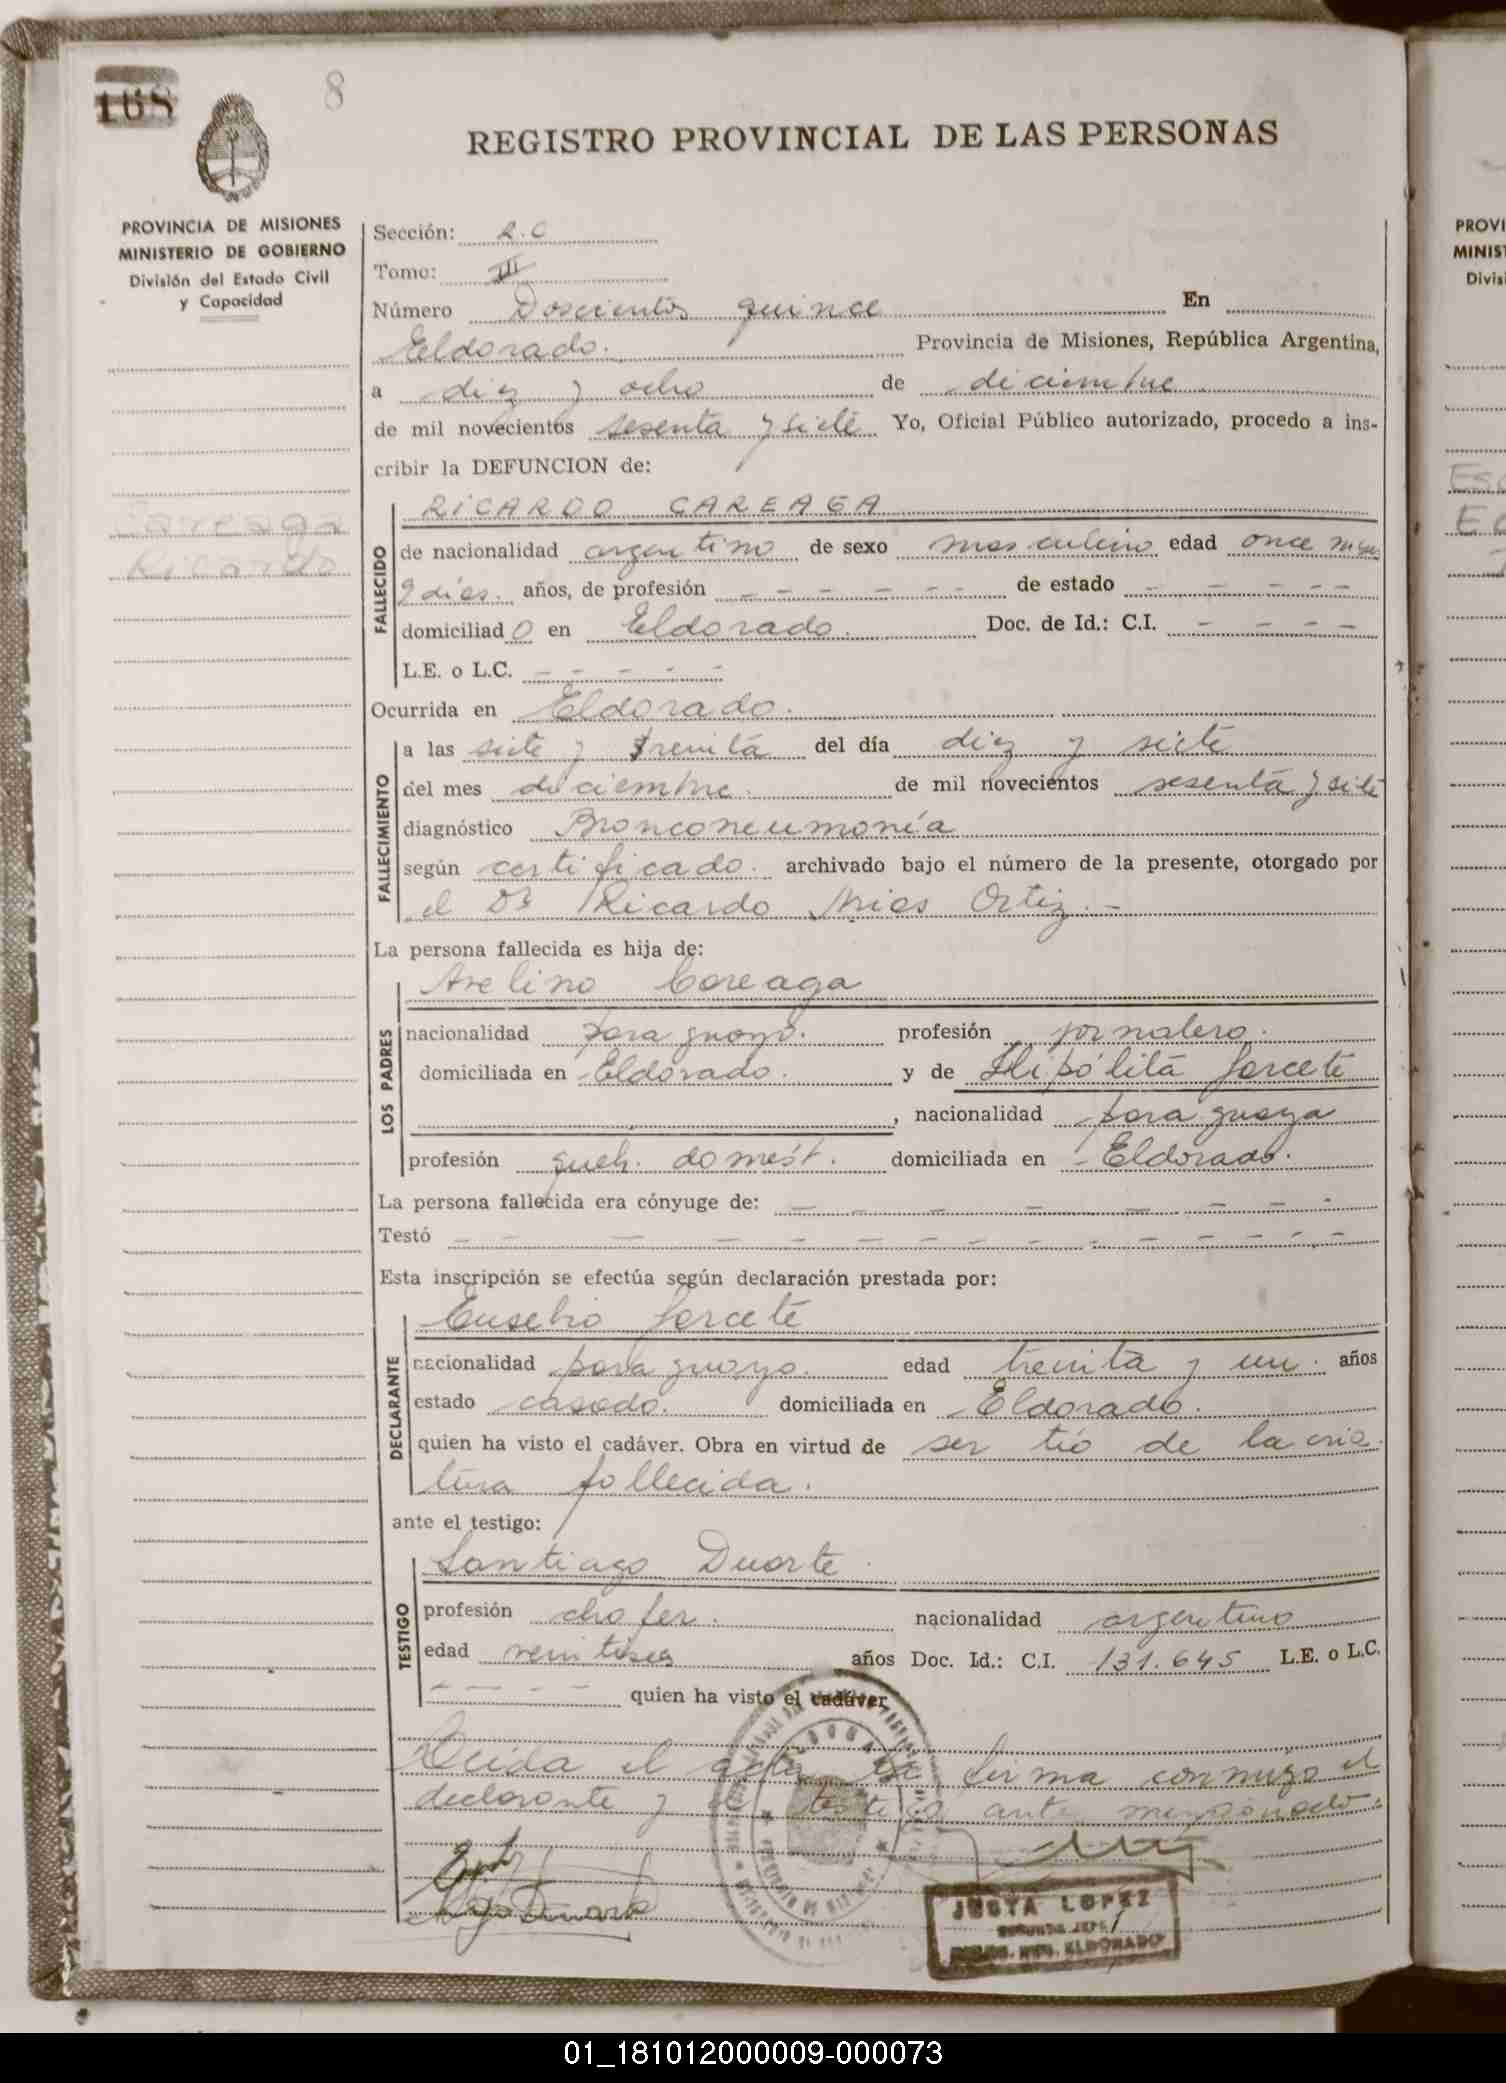 168
8
REGISTRO PROVINCIAL DE LAS PERSONAS
PROVINCIA DE MISIONES
MINISTERIO DE GOBIERNO
División del Estado Civil
y Capacidad
Careaga
Ricardo
Sección: R.C
Tomo: III
Número Doscientos quince En
Eldorado. Provincia de Misiones, República Argentina,
a diez y ocho de diciembre
de mil novecientos sesenta y siete Yo, Oficial Público autorizado, procedo a ins-
cribir la DEFUNCION de:
RICARDO CAREAGA
FALLECIDO
de nacionalidad argentino de sexo masculino edad once meses
9 días. años, de profesión - - - - - - de estado - - - - -
domiciliado en Eldorado. Doc. de Id.: C.I. - - - -
L.E. o L.C. - - - - - -
Ocurrida en Eldorado.
FALLECIMIENTO
a las siete y treinta del día diez y siete
del mes diciembre. de mil novecientos sesenta y siete
diagnóstico Bronconeumonía
según certificado. archivado bajo el número de la presente, otorgado por
el Dr Ricardo Ortiz. -
La persona fallecida es hija de:
LOS PADRES
Avelino Careaga
nacionalidad paraguayo. profesión jornalero.
domiciliada en Eldorado. y de Hipólita Jarcete
, nacionalidad paraguaya
profesión queh. domést. domiciliada en Eldorado.
La persona fallecida era cónyuge de: - - - - - - - -
Testó - - - - - - - - - - - - - -
Esta inscripción se efectúa según declaración prestada por:
DECLARANTE
Eusebio Jarcete
nacionalidad paraguayo. edad treinta y un. años
estado casado. domiciliada en Eldorado.
quien ha visto el cadáver. Obra en virtud de ser tío de la cria
tura fallecida.
ante el testigo:
TESTIGO
Santiago Duarte.
profesión chofer. nacionalidad argentino
edad veintiseis años Doc. Id.: C.I. 131.645 L.E. o L.C.
- - - - quien ha visto el cadáver
Leída el acta la firma conmigo el
declarante y el testigo ante mencionado.
JUSTA LOPEZ
SEGUNDA JEFE
ELDORADO
PROVI
MINIST
Divis
01_181012000009-000073